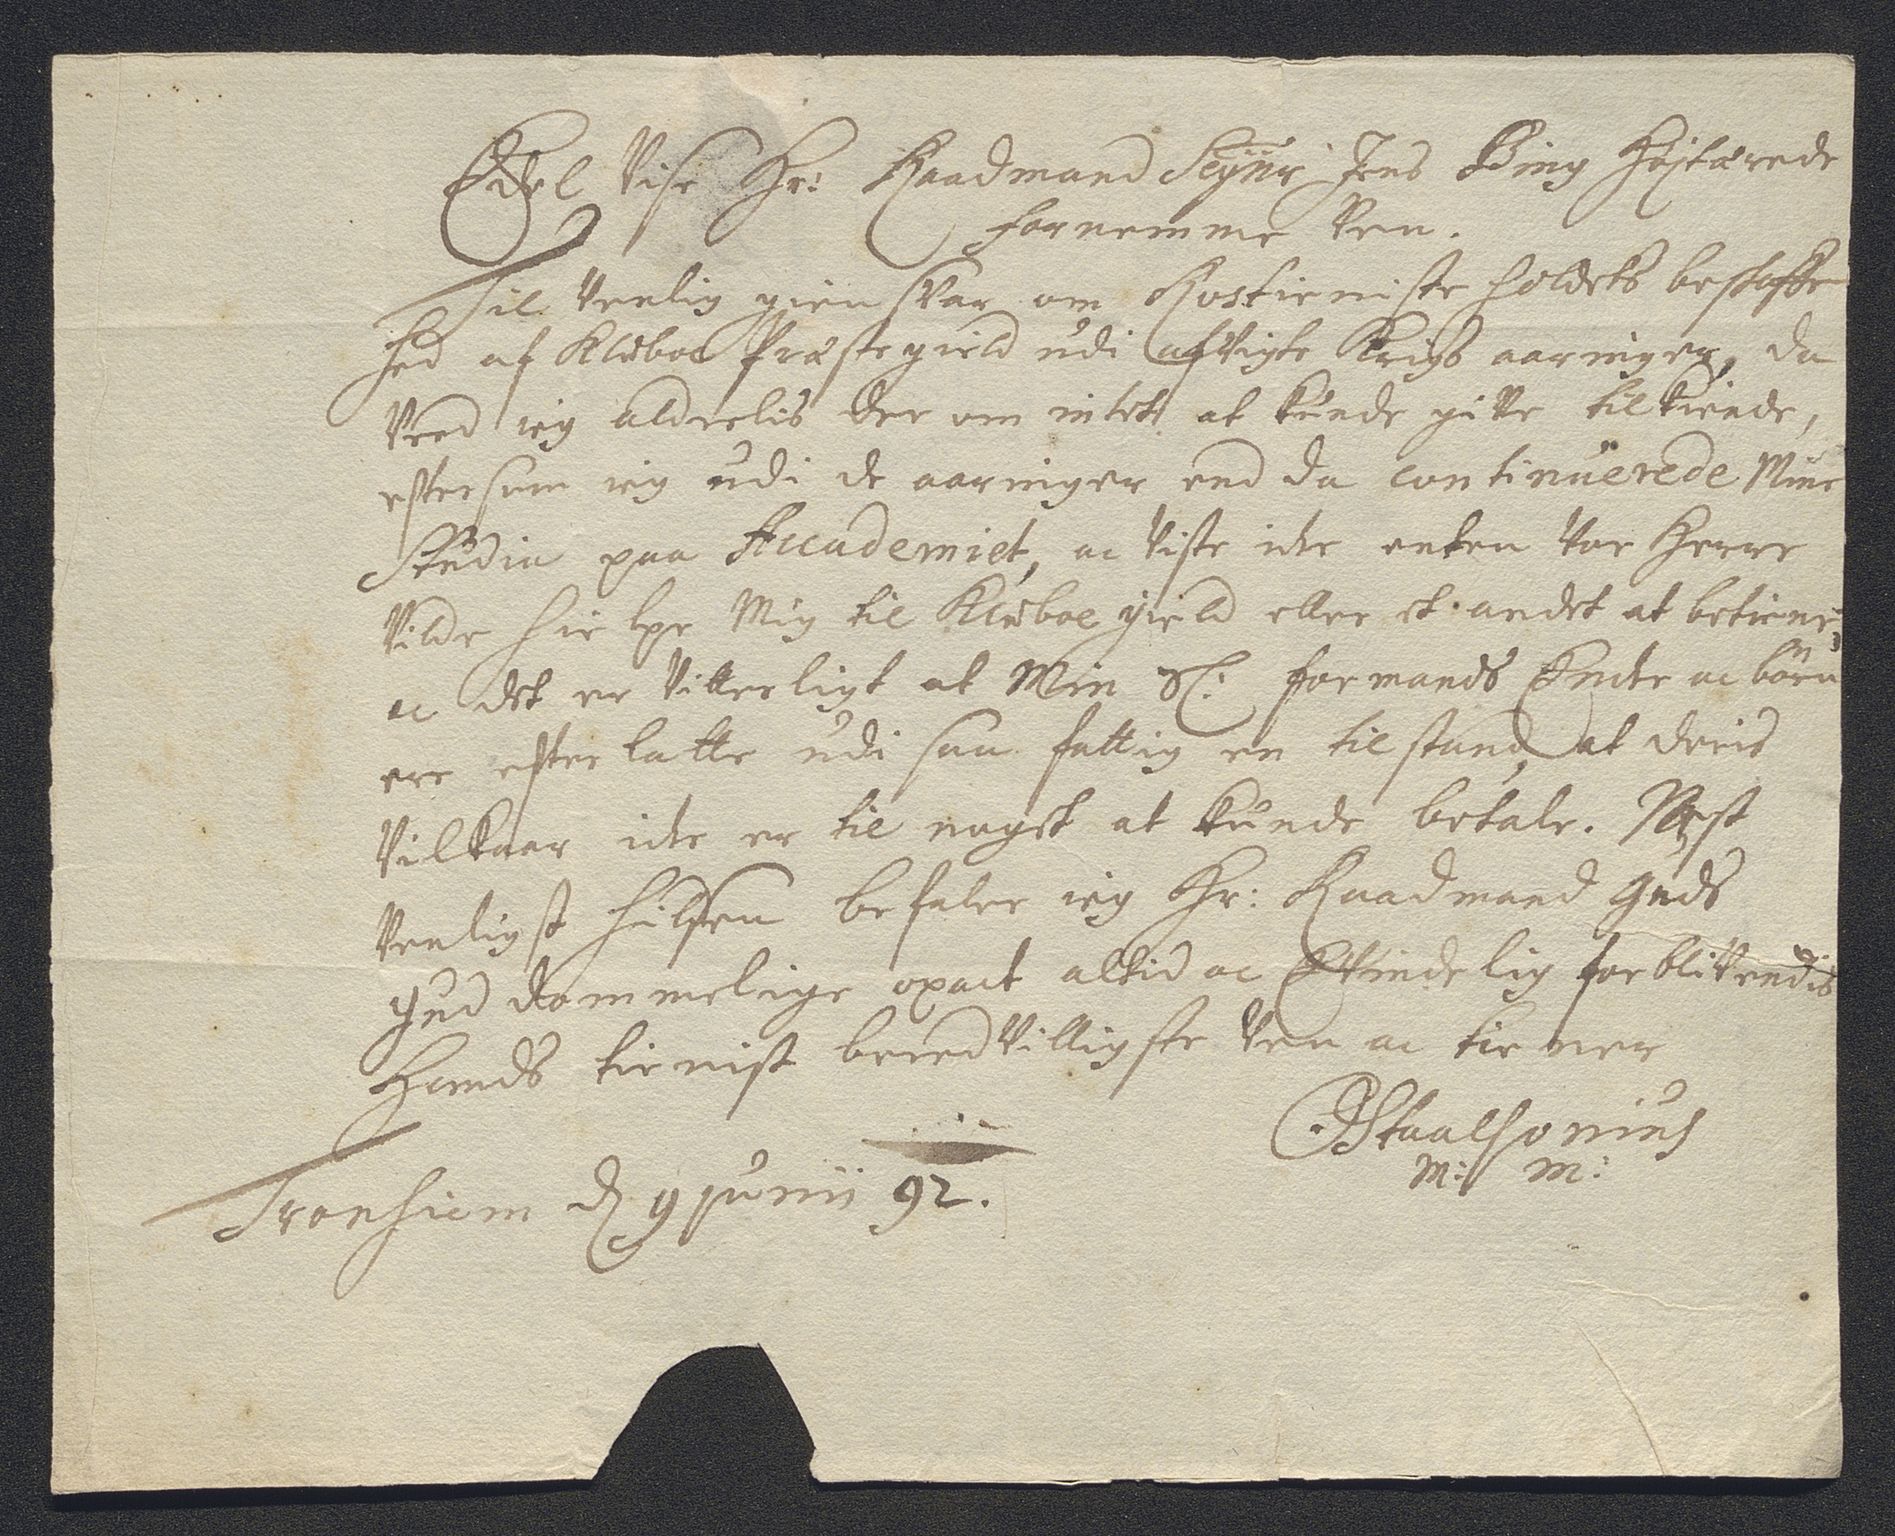 Edel Vise Hr: Raadmand Seignr Jens Bing Højtærede
fornemme Ven.
Til Venlig gien svar om Rostieniste holdets beskaffen
hed af Klæboe Præstegield udi afvigte Krigs aaringer, da
Veed ieg aldeelis der om intet at kunde give tilkiende,
eftersom ieg udi de aaringer end da continuerede Mine
Studia paa Accademiet, oc Viste icke enten Vor Herre
Vilde hielpe Mig til Klæboe gield eller et andet at betiene,
oc det er Vitterligt at Min Sl: formands Encke oc börn
ere efterlatte udi saa fattig en tilstand, at deris
Vilkaar icke er til noget at kunde betale. Næst
Venligst hilsen befaler ieg Hr: Raadmand Guds
Guddommelige opact altid oc Evindelig forblivendis
Hands tienist bereedvilligste Ven oc tiener
Staalsonius
M: m:
Tronhiem d 9 Junii 92.